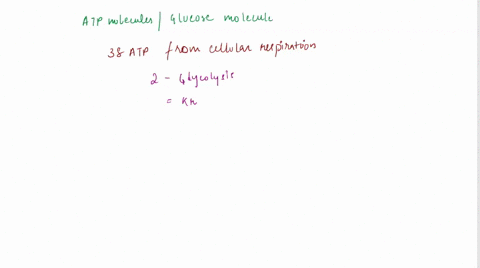 ATP molecules / Glucose molecule
38 ATP from cellular respiration
2 - Glycolysis
= Kr